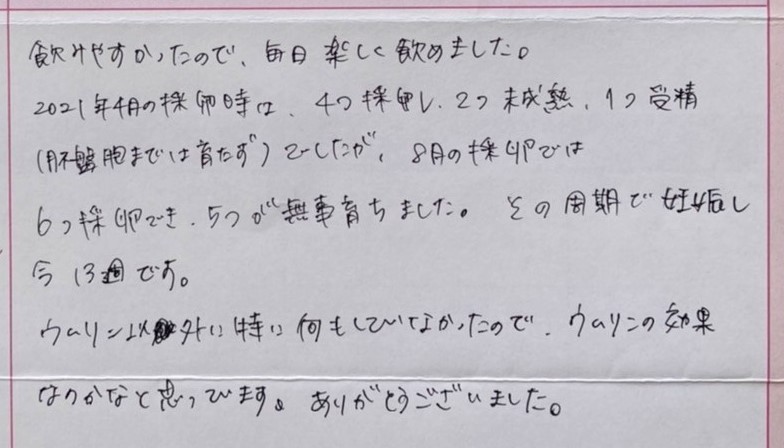 飲みやすかったので、毎日楽しく飲めました。
2021年4月の採卵時は、4つ採卵し、2つ未成熟、1つ受精
(胚盤胞までは育たず)でしたが、8月の採卵では
6つ採卵でき、5つが無事育ちました。その周期で妊娠し
今13週です。
ウムリン以外に特に何もしていなかったので、ウムリンの効果
なのかなと思っています。ありがとうございました。